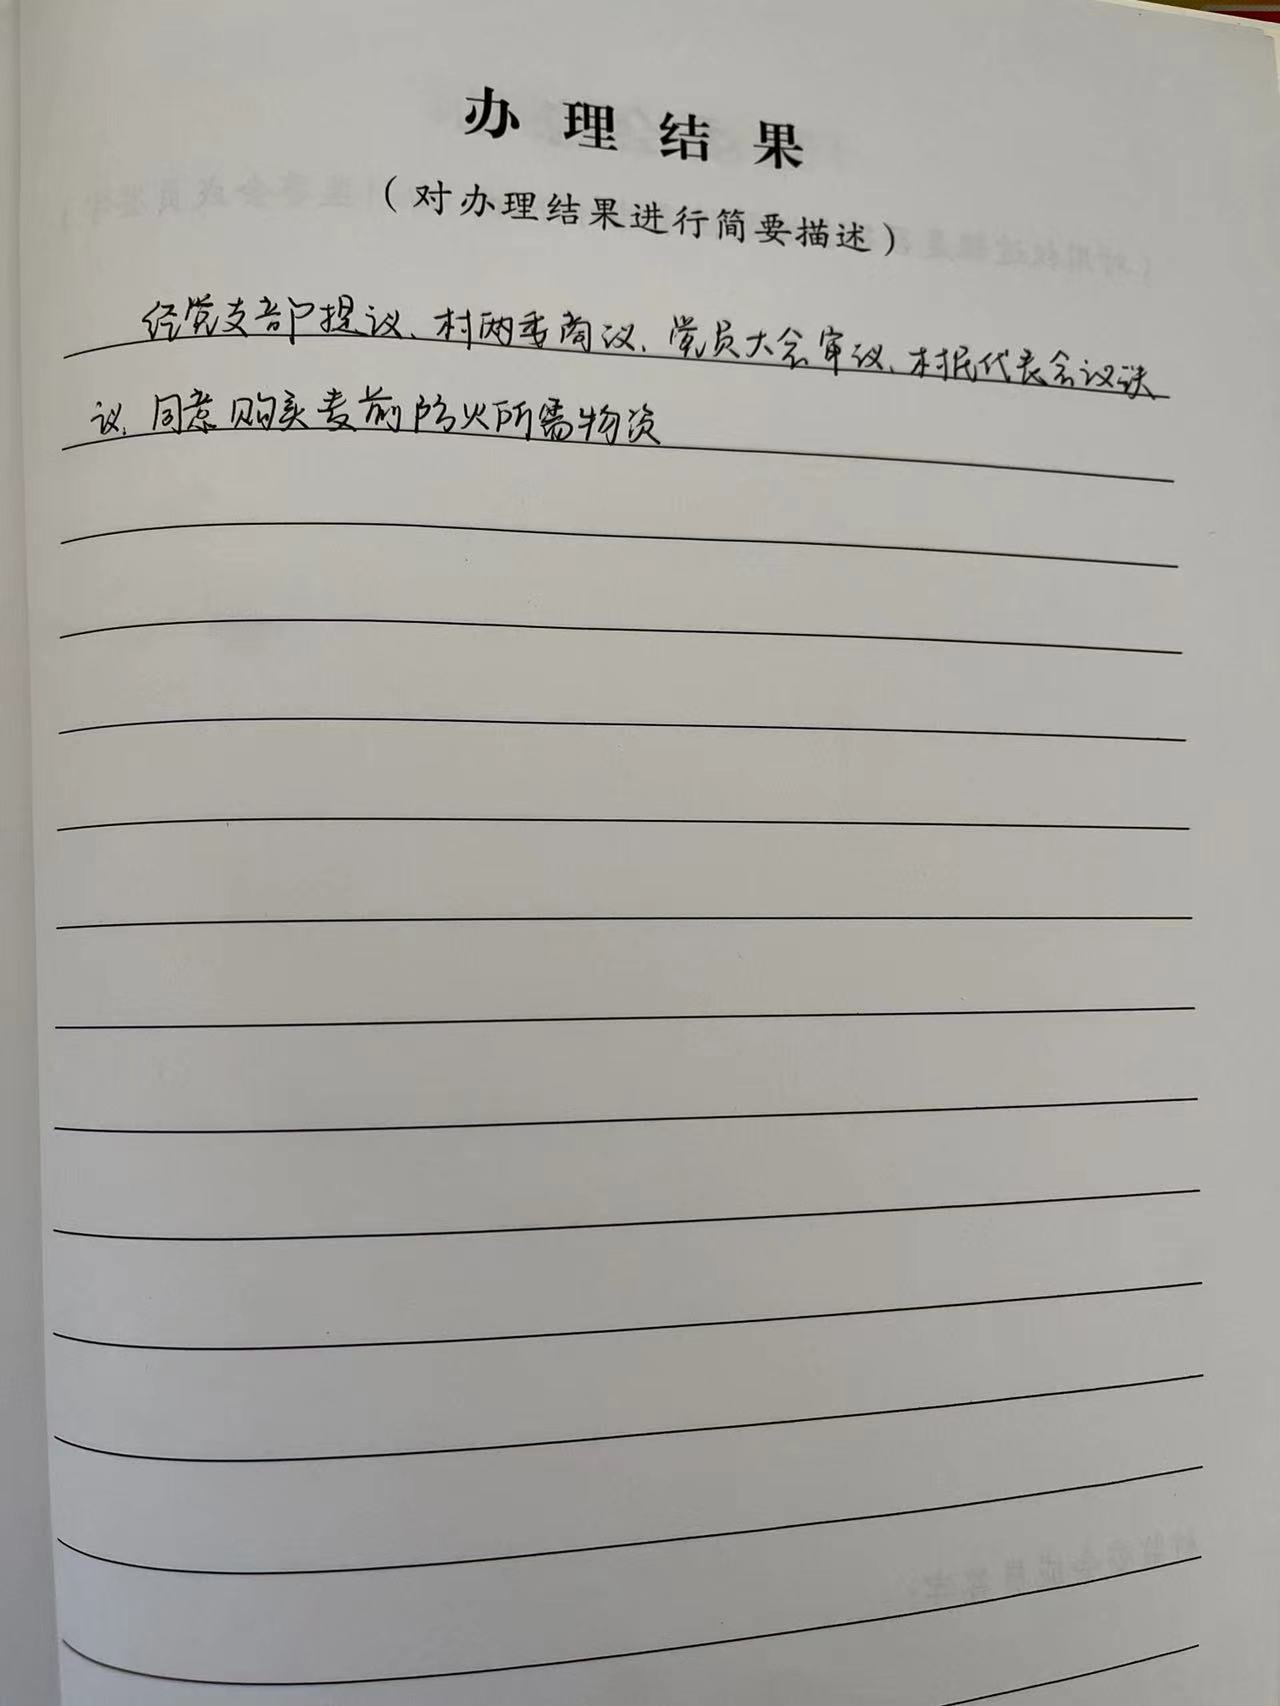 办理结果
（对办理结果进行简要描述）
经党支部提议、村两委商议、党员大会审议、村民代表会议决
议，同意购买麦前防火所需物资